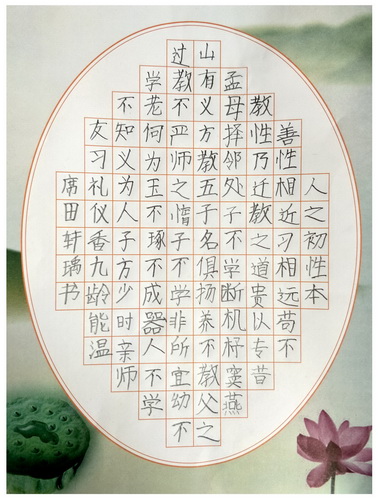 人之初性本
善性相近习相远苟不
教性乃迁教之道贵以专昔
孟母择邻处子不学断机杼窦燕
山有义方教五子名俱扬养不教父之
过教不严师之惰子不学非所宜幼不
学老何为玉不琢不成器人不学
不知义为人子方少时亲师
友习礼仪香九龄能温
席田轩瑀书